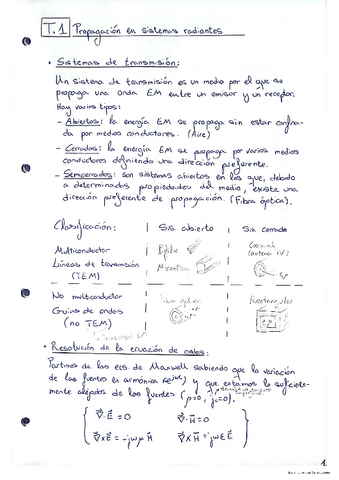 T.1 Propagación en sistemas radiantes
• Sistemas de transmisión:
Un sistema de transmisión es un medio por el que se
propaga una onda EM entre un emisor y un receptor.
Hay varios tipos:
- Abiertos: la energía EM se propaga sin estar confina-
da por medios conductores. (Aire)
- Cerrados: la energía EM se propaga por varios medios
conductores definiendo una dirección preferente.
- Semicerrados: son sistemas abiertos en los que, debido
a determinadas propiedades del medio, existe una
dirección preferente de propagación. (Fibra óptica).
Clasificación: Sis. abierto Sis. cerrado
Multiconductor Bifilar Coaxial
Líneas de transmisión Microstrip
(TEM)
No multiconductor Fibra óptica Rectangular
Guías de ondas
(no TEM)
• Resolución de la ecuación de ondas:
Partimos de las ecs. de Maxwell sabiendo que la variación
de las fuentes es armónica y que estamos lo suficiente-
mente alejados de las fuentes (ρ=0, J=0).
∇·E = 0 ∇·H = 0
∇×E = -jωμ H ∇×H = jωε E
1